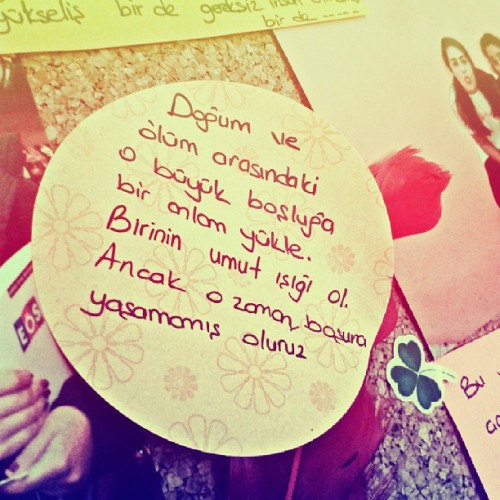 yükseliş bir de gereksiz insan
bir de ----
Doğum ve
ölüm arasındaki
o büyük boşluğa
bir anlam yükle.
Birinin umut ışığı ol.
Ancak o zaman boşuna
yaşamamış oluruz
EOS
Bu